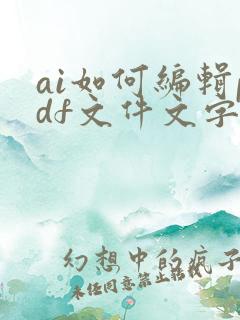 ai如何编辑p
df文件文字
幻想中的疯子
未经同意禁止转载